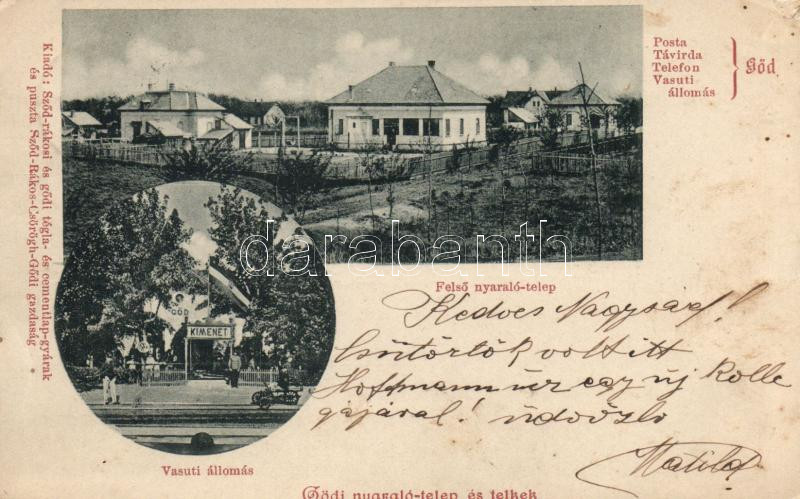 Posta
Távirda
Telefon
Vasuti
állomás
Gőd
Kiadó: Sződ-rákosi és gődi tégla- és cementlap-gyárak
és puszta Sződ-Rákos-Csörögh-Gődi gazdaság
darabanth.com
GÖD
KIMENET
Felső nyaraló-telep
Kedves Nagysád!
Csütörtök volt itt
Hoffmann úr egy új kolle
gájával! üdvözlő
Matild
Vasuti állomás
Gödi nyaraló-telep és telkek